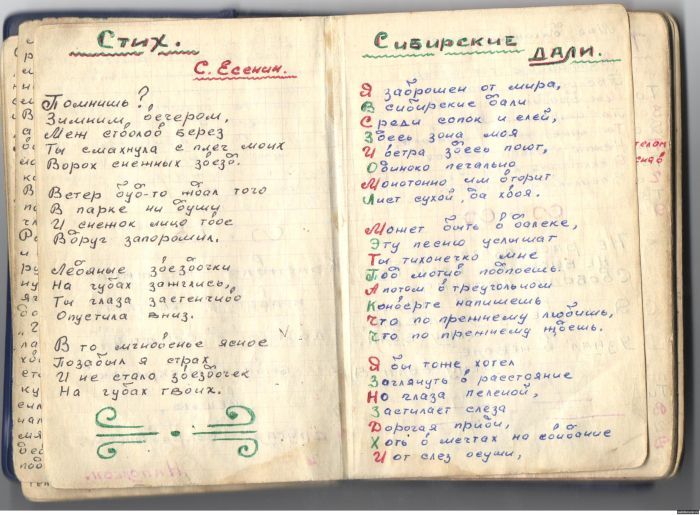 Стих.
С. Есенин.
Помнишь?
Зимним вечером,
Меж стволов берез
Ты смахнула с плеч моих
Ворох снежных звезд.
Ветер буд-то ждал того
В парке ни души
И снежок лицо твое
Вдруг запорошил.
Ледяные звездочки
На губах зажглись,
Ты глаза застенчиво
Опустила вниз.
В то мгновенье ясное
Позабыл я страх
И не стало звездочек
На губах твоих.
Сибирские
дали.
Я заброшен от мира,
В сибирские дали
Среди сопок и елей,
Здесь зона моя
И ветра здесь поют,
Одиноко печально
Монотонно им вторит
Лист сухой, да хвоя.
Может быть в далеке,
Эту песню услишат
Ты тихонечко мне
Под мотив подпоешь.
А потом в треугольном
Конверте напишешь
Что по прежнему любишь,
Что по прежнему ждешь.
Я бы тоже хотел
Заглянуть в расстояние
Но глаза пеленой,
Застилает слеза
Дорогая приди,
Хоть в мечтах на свидание
И от слез осуши,